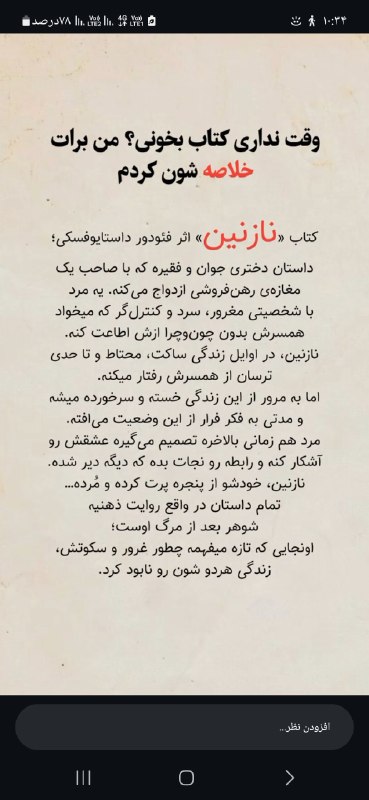 ۱۰:۳۴
۷۸درصد
Vo) LTE2
4G
Vo) LTE1
وقت نداری کتاب بخونی؟ من برات
خلاصه شون کردم
کتاب «نازنین» اثر فئودور داستایوفسکی؛
داستان دختری جوان و فقیره که با صاحب یک
مغازه‌ی رهن‌فروشی ازدواج می‌کنه. یه مرد
با شخصیتی مغرور، سرد و کنترل‌گر که میخواد
همسرش بدون چون‌وچرا ازش اطاعت کنه.
نازنین، در اوایل زندگی ساکت، محتاط و تا حدی
ترسان از همسرش رفتار میکنه.
اما به مرور از این زندگی خسته و سرخورده میشه
و مدتی به فکر فرار از این وضعیت می‌افته.
مرد هم زمانی بالاخره تصمیم می‌گیره عشقش رو
آشکار کنه و رابطه رو نجات بده که دیگه دیر شده.
نازنین، خودشو از پنجره پرت کرده و مُرده...
تمام داستان در واقع روایت ذهنیه
شوهر بعد از مرگ اوست؛
اونجایی که تازه میفهمه چطور غرور و سکوتش،
زندگی هردو شون رو نابود کرد.
افزودن نظر...